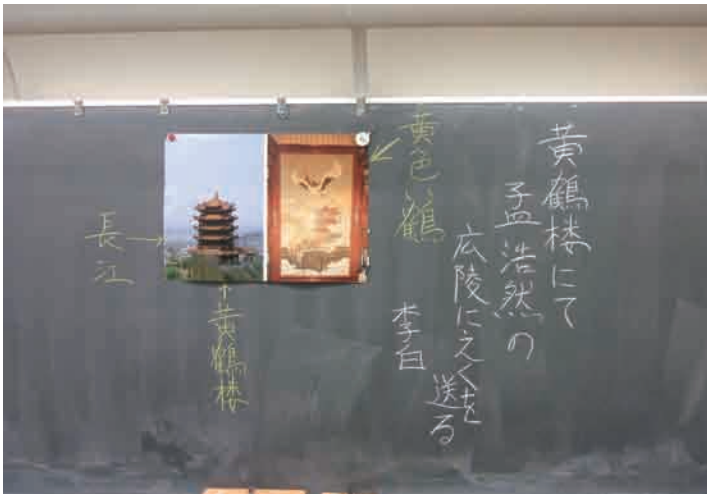 黄鶴楼にて
孟浩然の
広陵にえくを
送る
李白
黄色い鶴
長江
黄鶴楼